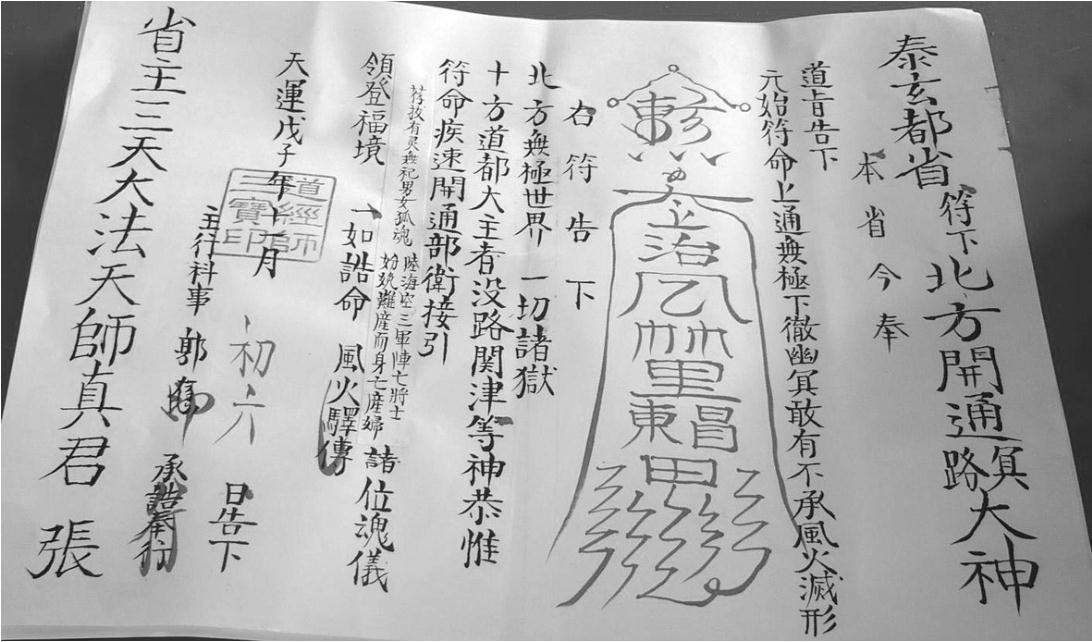 泰玄都省
符下北方開通冥路大神
本省今奉
道旨告下
元始符命上通無極下徹幽冥敢有不承風火滅形
右符告下
北方無極世界一切諸獄
十方道都大主者没路関津等神恭惟
符命疾速開通部衛接引
荐拔有灵無祀男女孤魂
陸海空三軍陣亡將士
難産而身亡産婦
諸位魂儀
領登福境
一如誥命
風火驛傳
天運戊子年十月
初六
日告下
道經師
三寶印
主行科事
郭
承誥奉行
省主三天大法天師真君
張